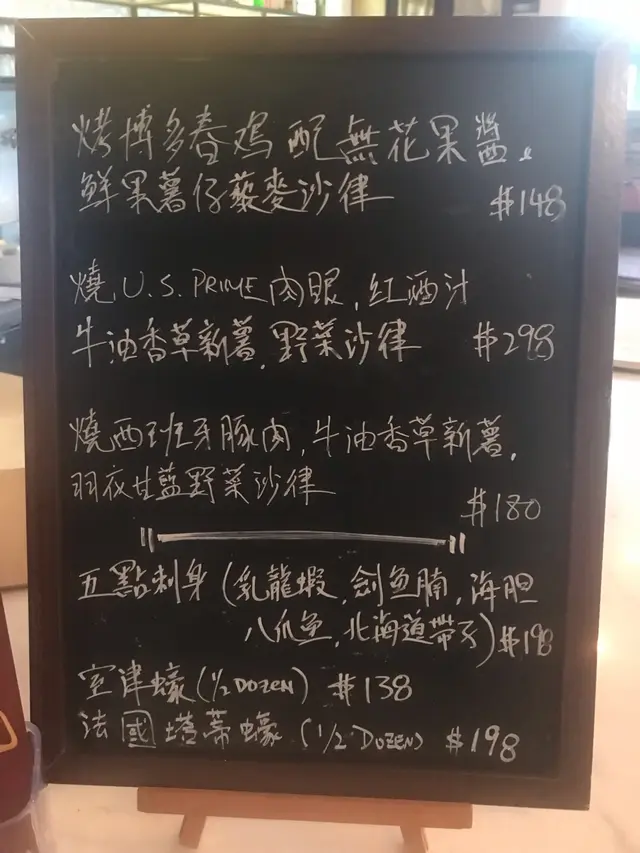 烤博多春鸡配無花果醬.
鮮果薯仔藜麥沙律 $148
燒U.S. PRIME肉眼,紅酒汁
牛油香草新薯,野菜沙律 $298
燒西班牙豚肉,牛油香草新薯,
羽衣甘藍野菜沙律 $180
五點刺身(乳龍蝦,劍魚腩,海胆
八爪魚,北海道帶子) $198
室津蠔(1/2 DOZEN) $138
法國塔蒂蠔(1/2 DOZEN) $198